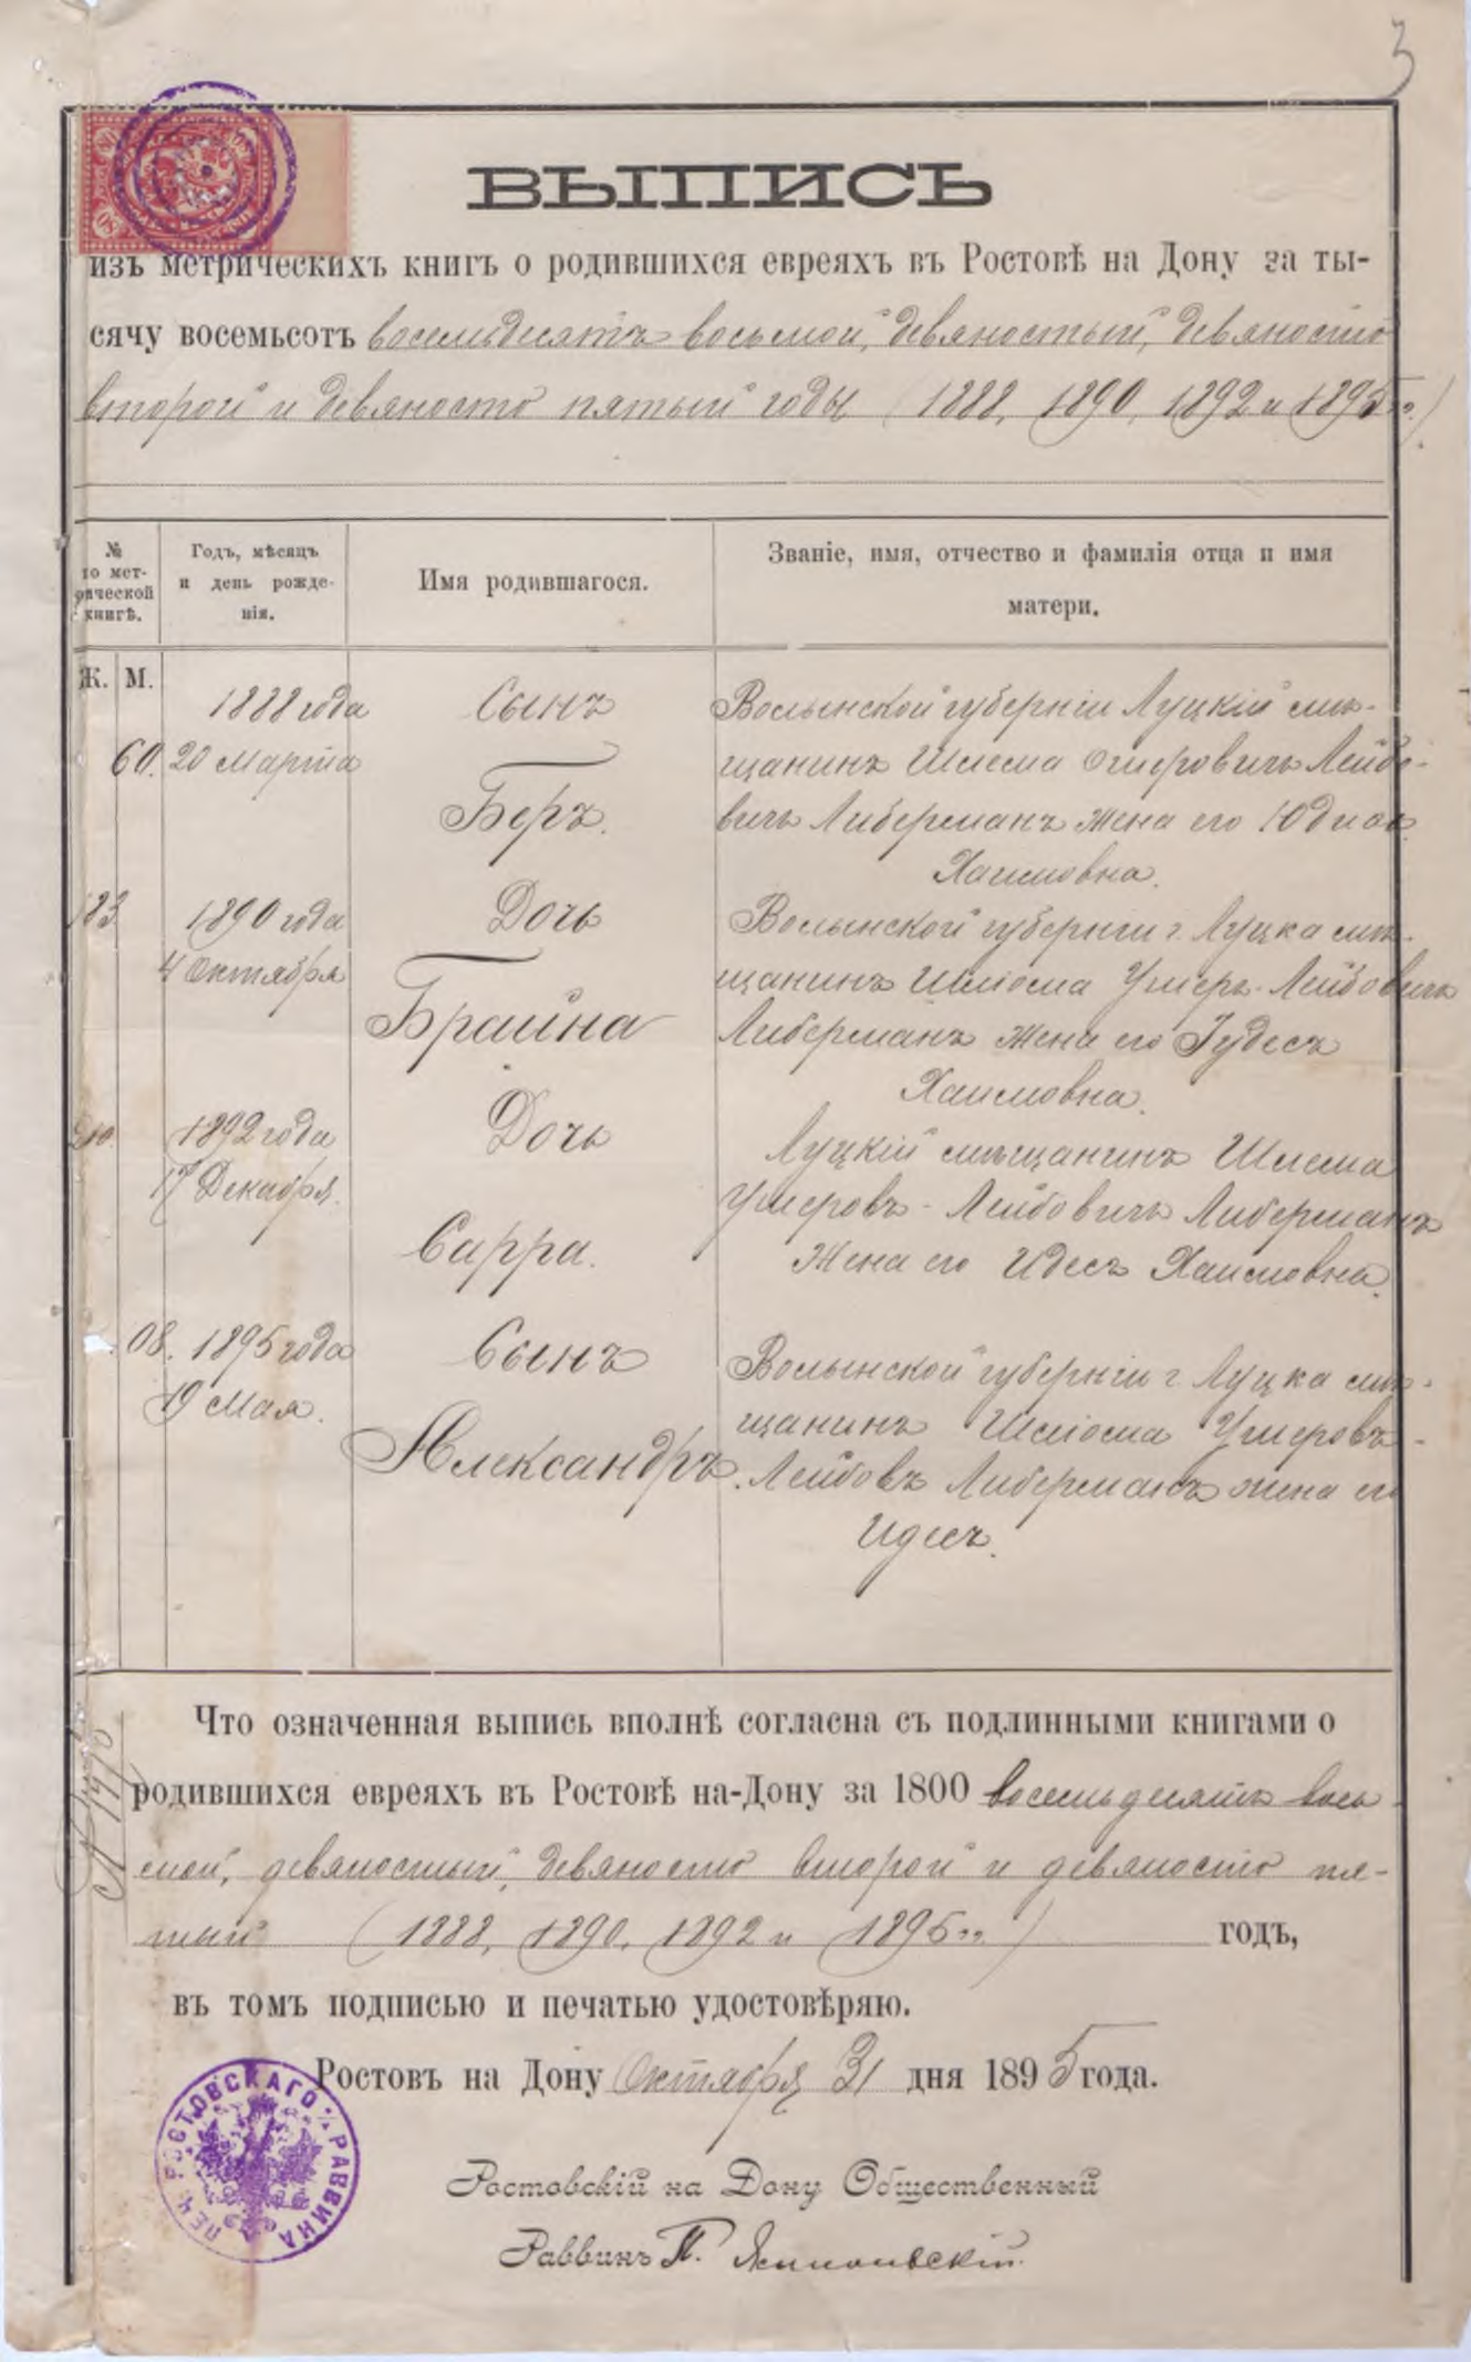 3
ВЫПИСЬ
изъ метрическихъ книгъ о родившихся евреяхъ въ Ростовѣ на Дону за ты-
сячу восемьсотъ восемьдесятъ восьмой, девяностый, девяносто
второй и девяносто пятый годы (1888, 1890, 1892 и 1895 гг.)
№ по мет-рической книгѣ.
Годъ, мѣсяцъ и день рожде-нія.
Имя родившагося.
Званіе, имя, отчество и фамилія отца и имя матери.
Ж. М.
60. 1888 года 20 Марта
Сынъ
Беръ.
Волынской губерніи Луцкій мѣ-
щанинъ Шлема Ошеровичъ Лейбо-
вичъ Либерманъ жена его Юдиѳь
Хаимовна.
183 1890 года 4 Октября
Дочь
Брайна
Волынской губерніи г. Луцка мѣ-
щанинъ Шліома Ушеръ-Лейбовичъ
Либерманъ жена его Іудесъ
Хаимовна.
210. 1892 года 17 Декабря.
Дочь
Сарра.
Луцкій мѣщанинъ Шлема
Ушеровъ-Лейбовичъ Либерманъ
Жена его Идесъ Хаимовна.
08. 1895 года 19 Мая.
Сынъ
Александръ.
Волынской губерніи г. Луцка мѣ-
щанинъ Шліома Ушеровъ-
Лейбовъ Либерманъ жена его
Идесъ.
Что означенная выпись вполнѣ согласна съ подлинными книгами о
родившихся евреяхъ въ Ростовѣ на-Дону за 1800 восемьдесятъ вось-
мой, девяностый, девяносто второй и девяносто пя-
тый (1888, 1890, 1892 и 1895 гг.) годъ,
въ томъ подписью и печатью удостовѣряю.
Ростовъ на Дону Октября 31 дня 1895 года.
Ростовскій на Дону Общественный
Раввинъ
ПЕЧ. РОСТОВСКАГО н/Д РАВВИНА